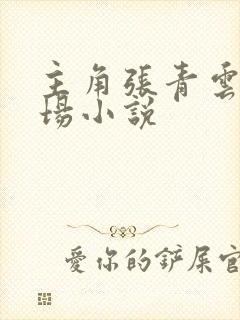 主角張青雲
場小說
愛你的鏟屎官